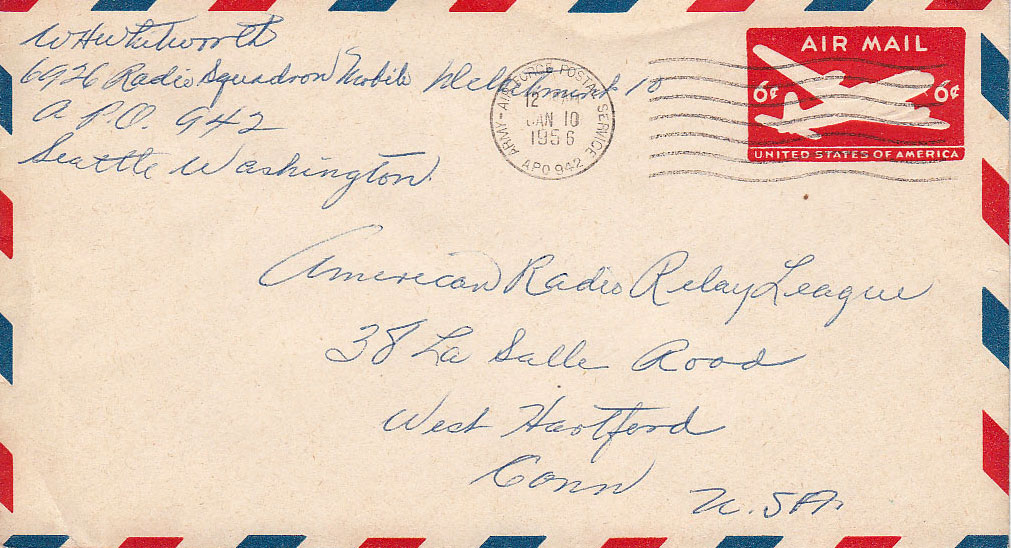 W H Whitworth
6926 Radio Squadron Mobile Detachment 10
A P.O. 942
Seattle Washington
ARMY-AIR FORCE POSTAL SERVICE
12
JAN 10
1956
APO 942
AIR MAIL
6¢ 6¢
UNITED STATES OF AMERICA
American Radio Relay League
38 La Salle Road
West Hartford
Conn U.SA.